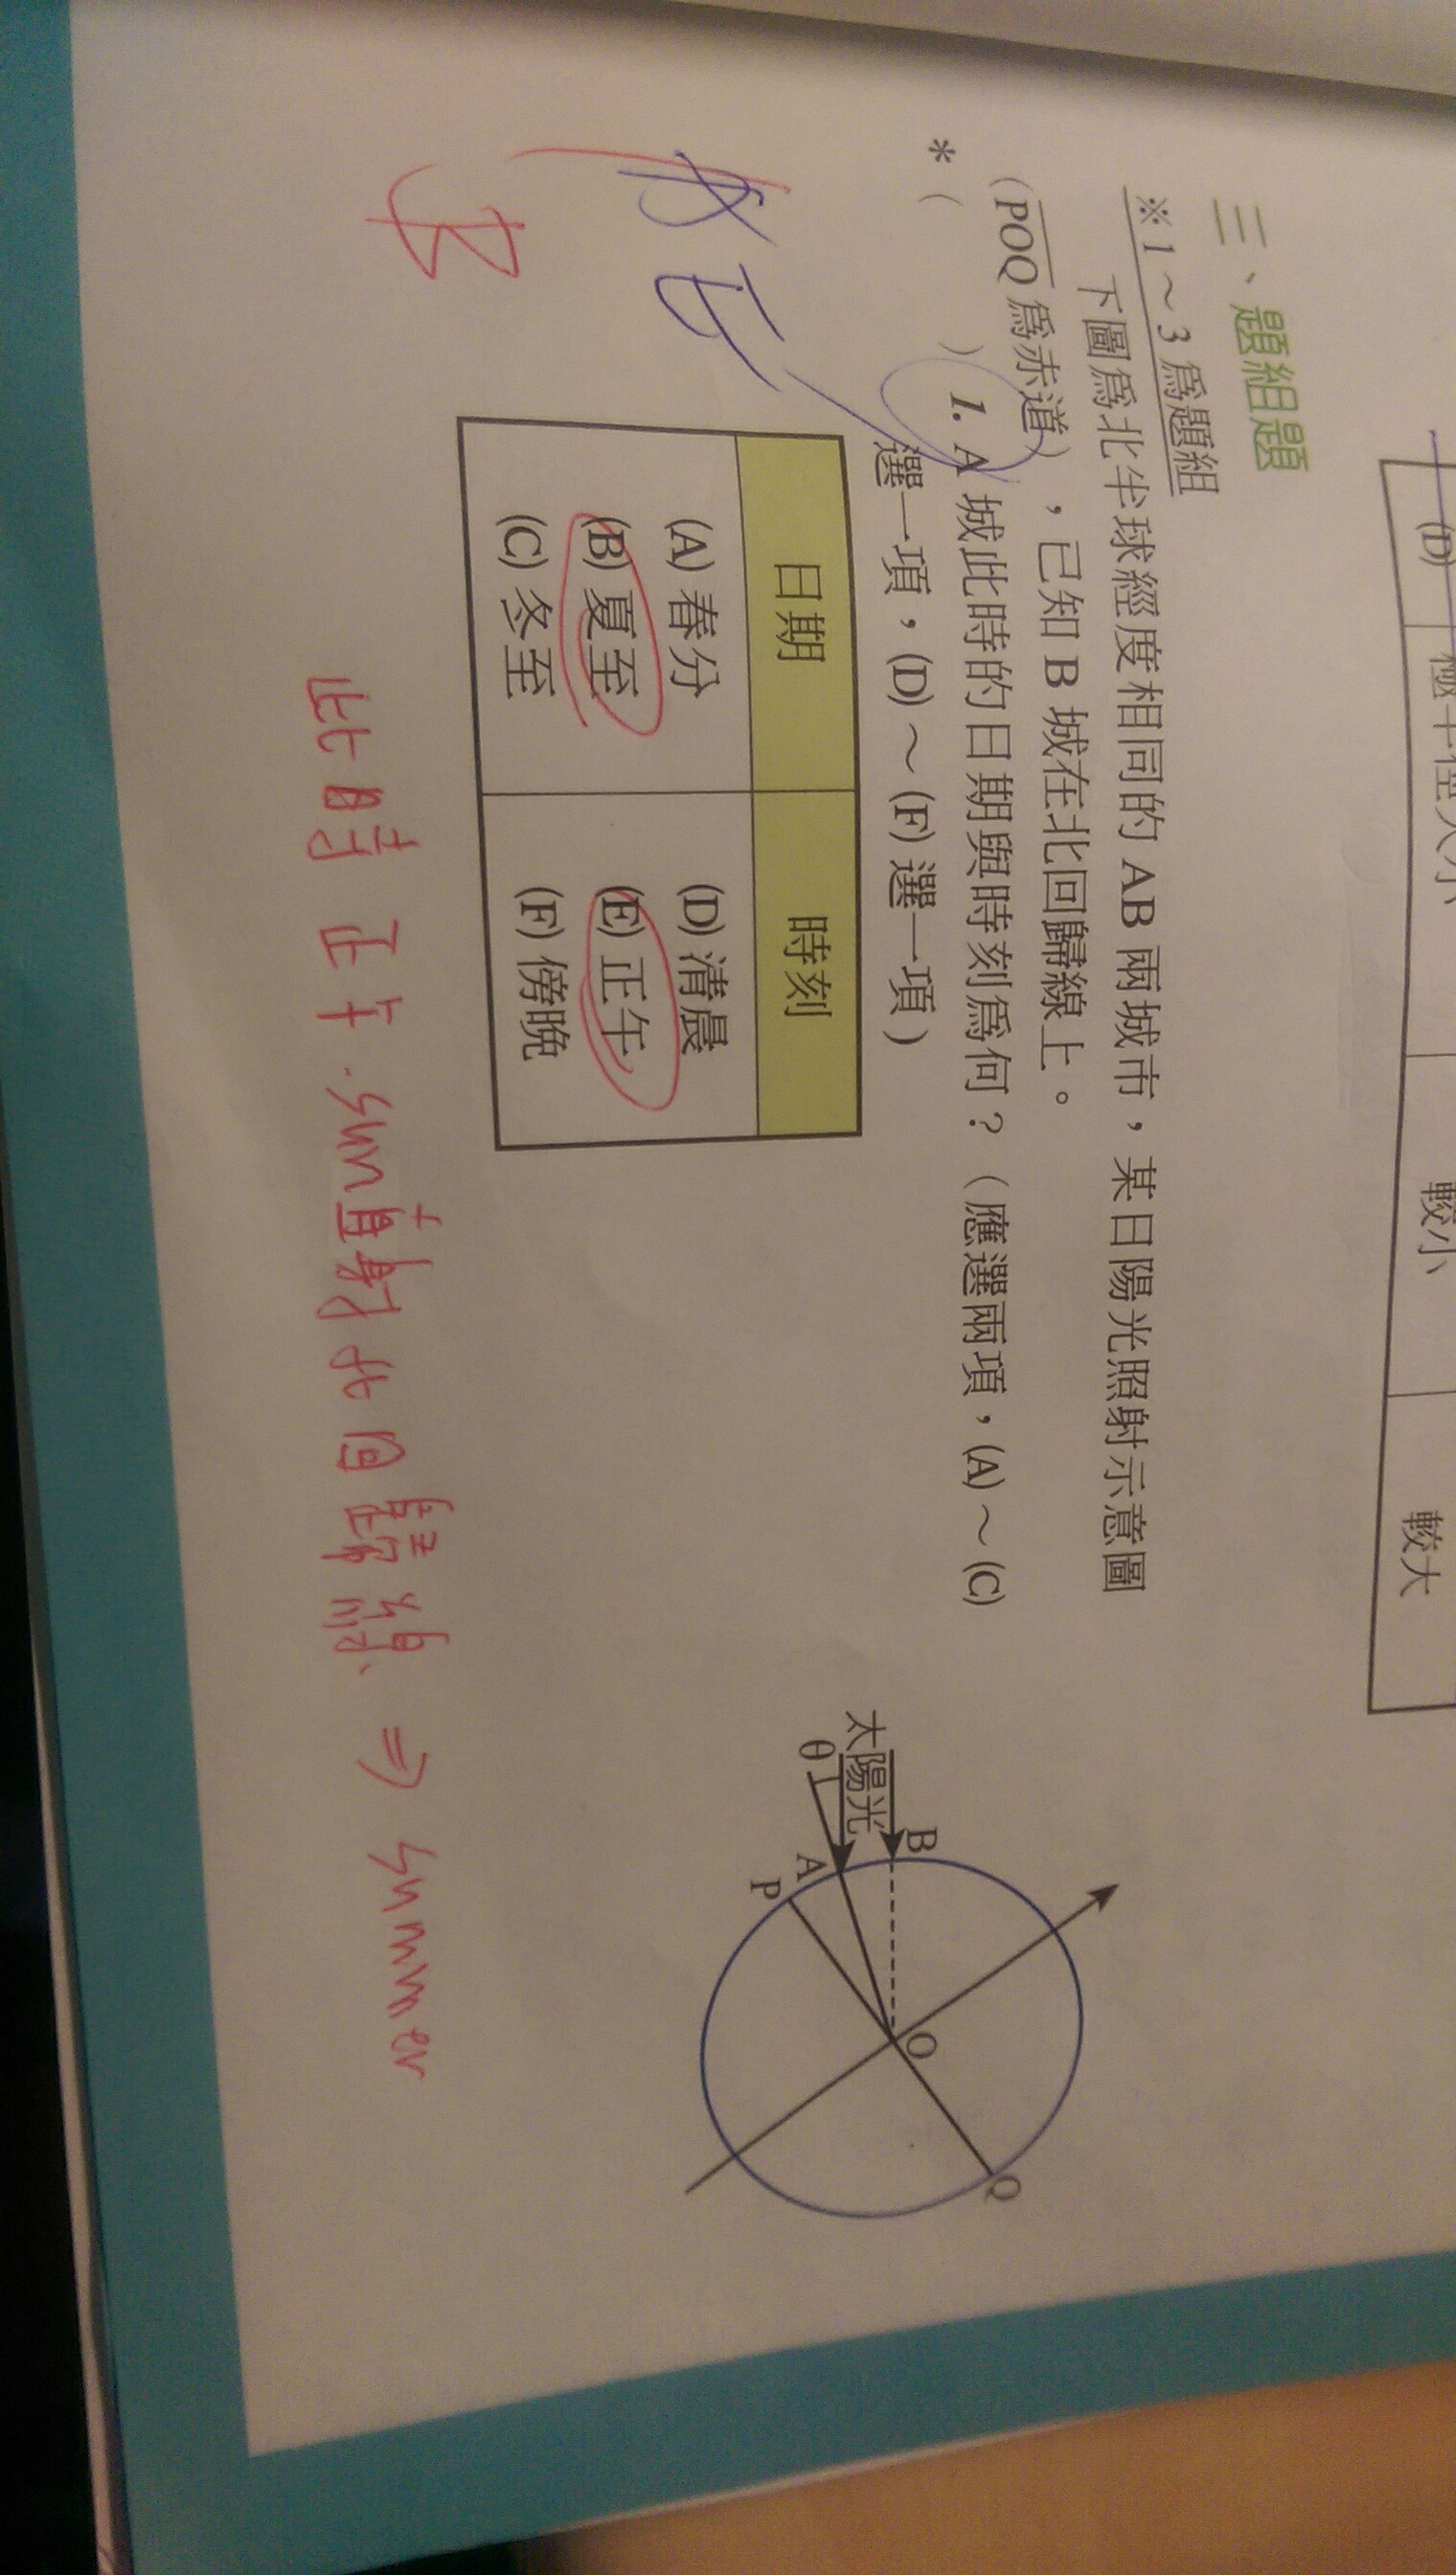 (D)
較小
較大
三、題組題
※1～3 爲題組
下圖爲北半球經度相同的 AB 兩城市，某日陽光照射示意圖
（POQ 爲赤道），已知 B 城在北回歸線上。
*（ ）1. A 城此時的日期與時刻爲何？（應選兩項，(A)～(C)
選一項，(D)～(F) 選一項）
日期 時刻
(A) 春分 (D) 清晨
(B) 夏至 (E) 正午
(C) 冬至 (F) 傍晚
太陽光
θ
B
A
P
O
Q
A E
B
此時正午.sun直射北回歸線、⇒ summer